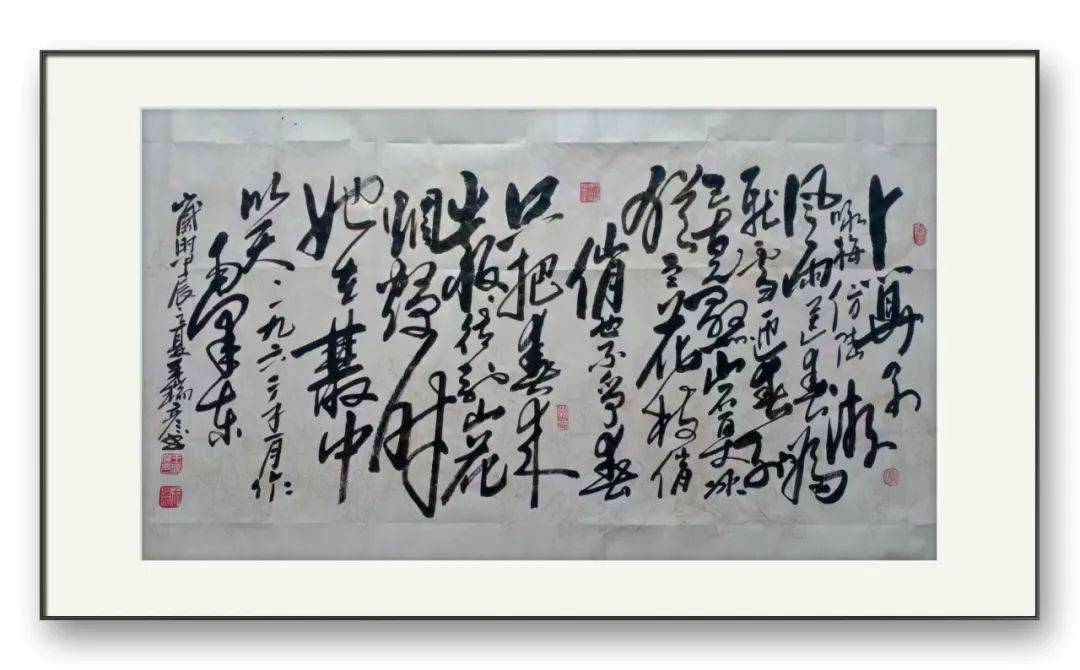 卜算子
咏梅 仿陆游
风雨送春归
飞雪迎春到
已是悬崖百丈冰
犹有花枝俏
俏也不争春
只把春来
报待到山花
烂熳时
她在丛中
笑 一九六二年 月作
毛泽东
岁时甲辰之夏王瑞 书